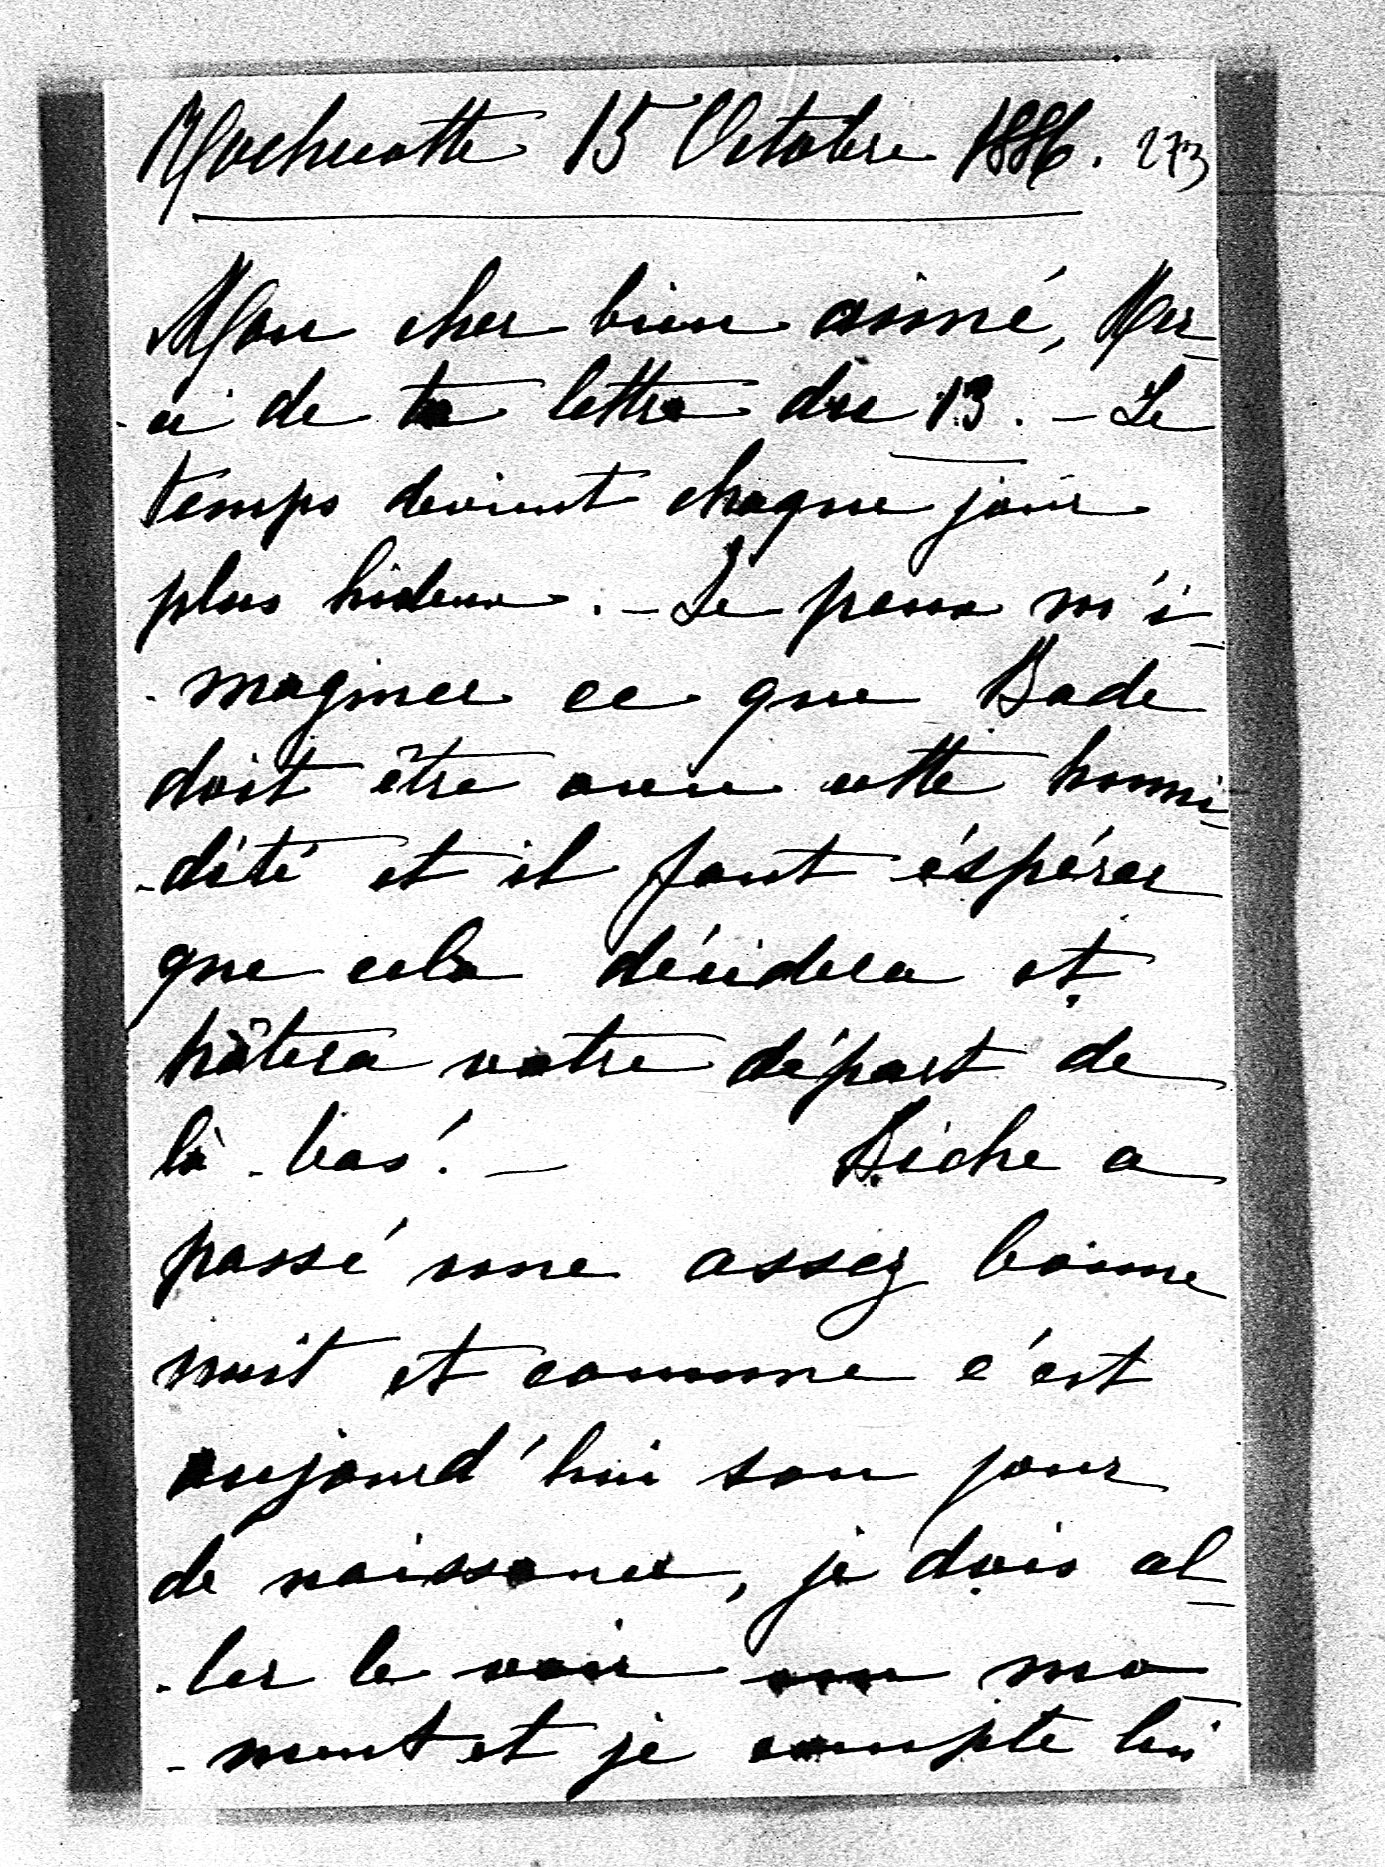 Rochecotte 15 Octobre 1886. 273
Mon cher bien aimé, Mer-
-ci de ta lettre du 13. - Le
temps devient chaque jour
plus hideux. - Je peux m'i-
-maginer ce que Bade
doit être avec cette humi-
-dité et il faut éspérer
que cela décidera et
hâtera votre départ de
là-bas! - Biche a
passé une assez bonne
nuit et comme c'est
aujourd'hui son jour
de naissance, je dois al-
-ler le voir un mo-
-ment et je compte lui